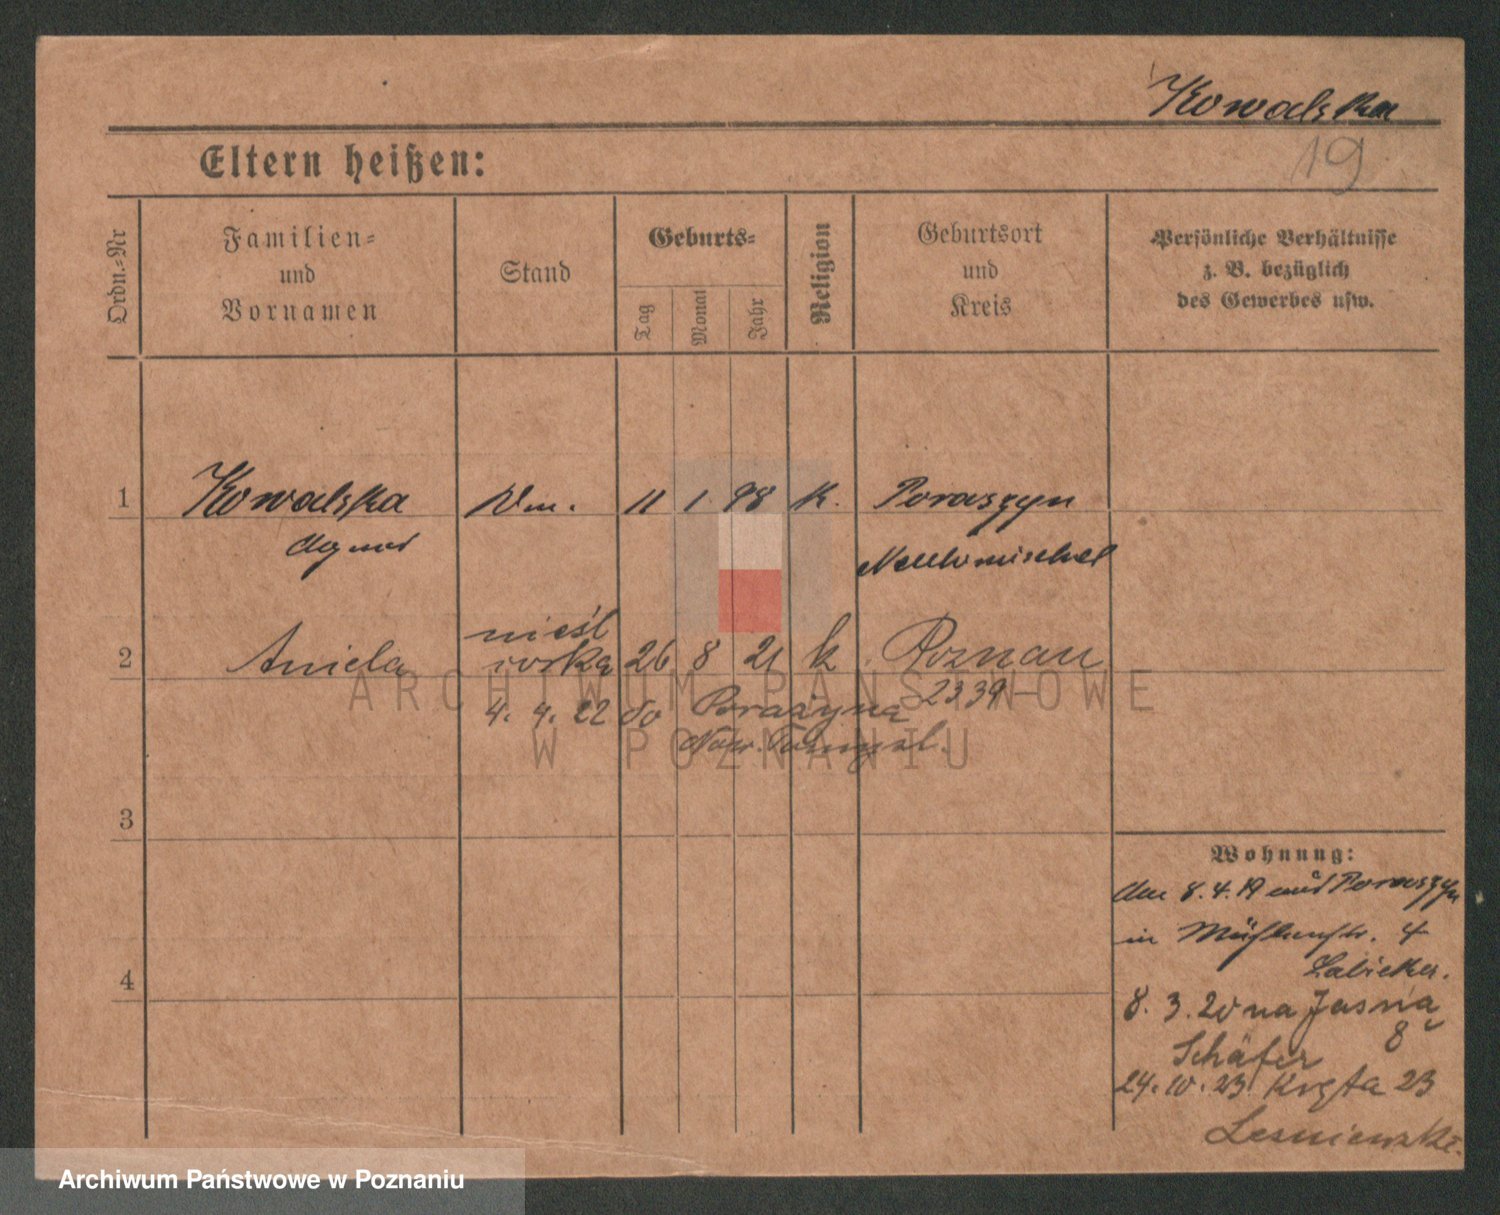 Kowalska
19
Eltern heißen:
Ordn.-Nr
Familien-
und
Vornamen
Stand
Geburts-
Tag
Monat
Jahr
Religion
Geburtsort
und
Kreis
Persönliche Verhältnisse
z. B. bezüglich
des Gewerbes usw.
1 Kowalska 11 1 98 K. Poraszyn
Neutomischel
nieśl
2 Aniela 26 8 21 k. Poznan
2339
4. 4. 22 do Porażyna
Now. Tomysl.
3
4
Wohnung:
8. 4. 19 aus Poraszyn
in Mühlenstr. 4
8. 3. 20 na Jasna
8
Schäfer
24. 10. 23
Lesniewska.
ARCHIWUM PAŃSTWOWE
W POZNANIU
Archiwum Państwowe w Poznaniu